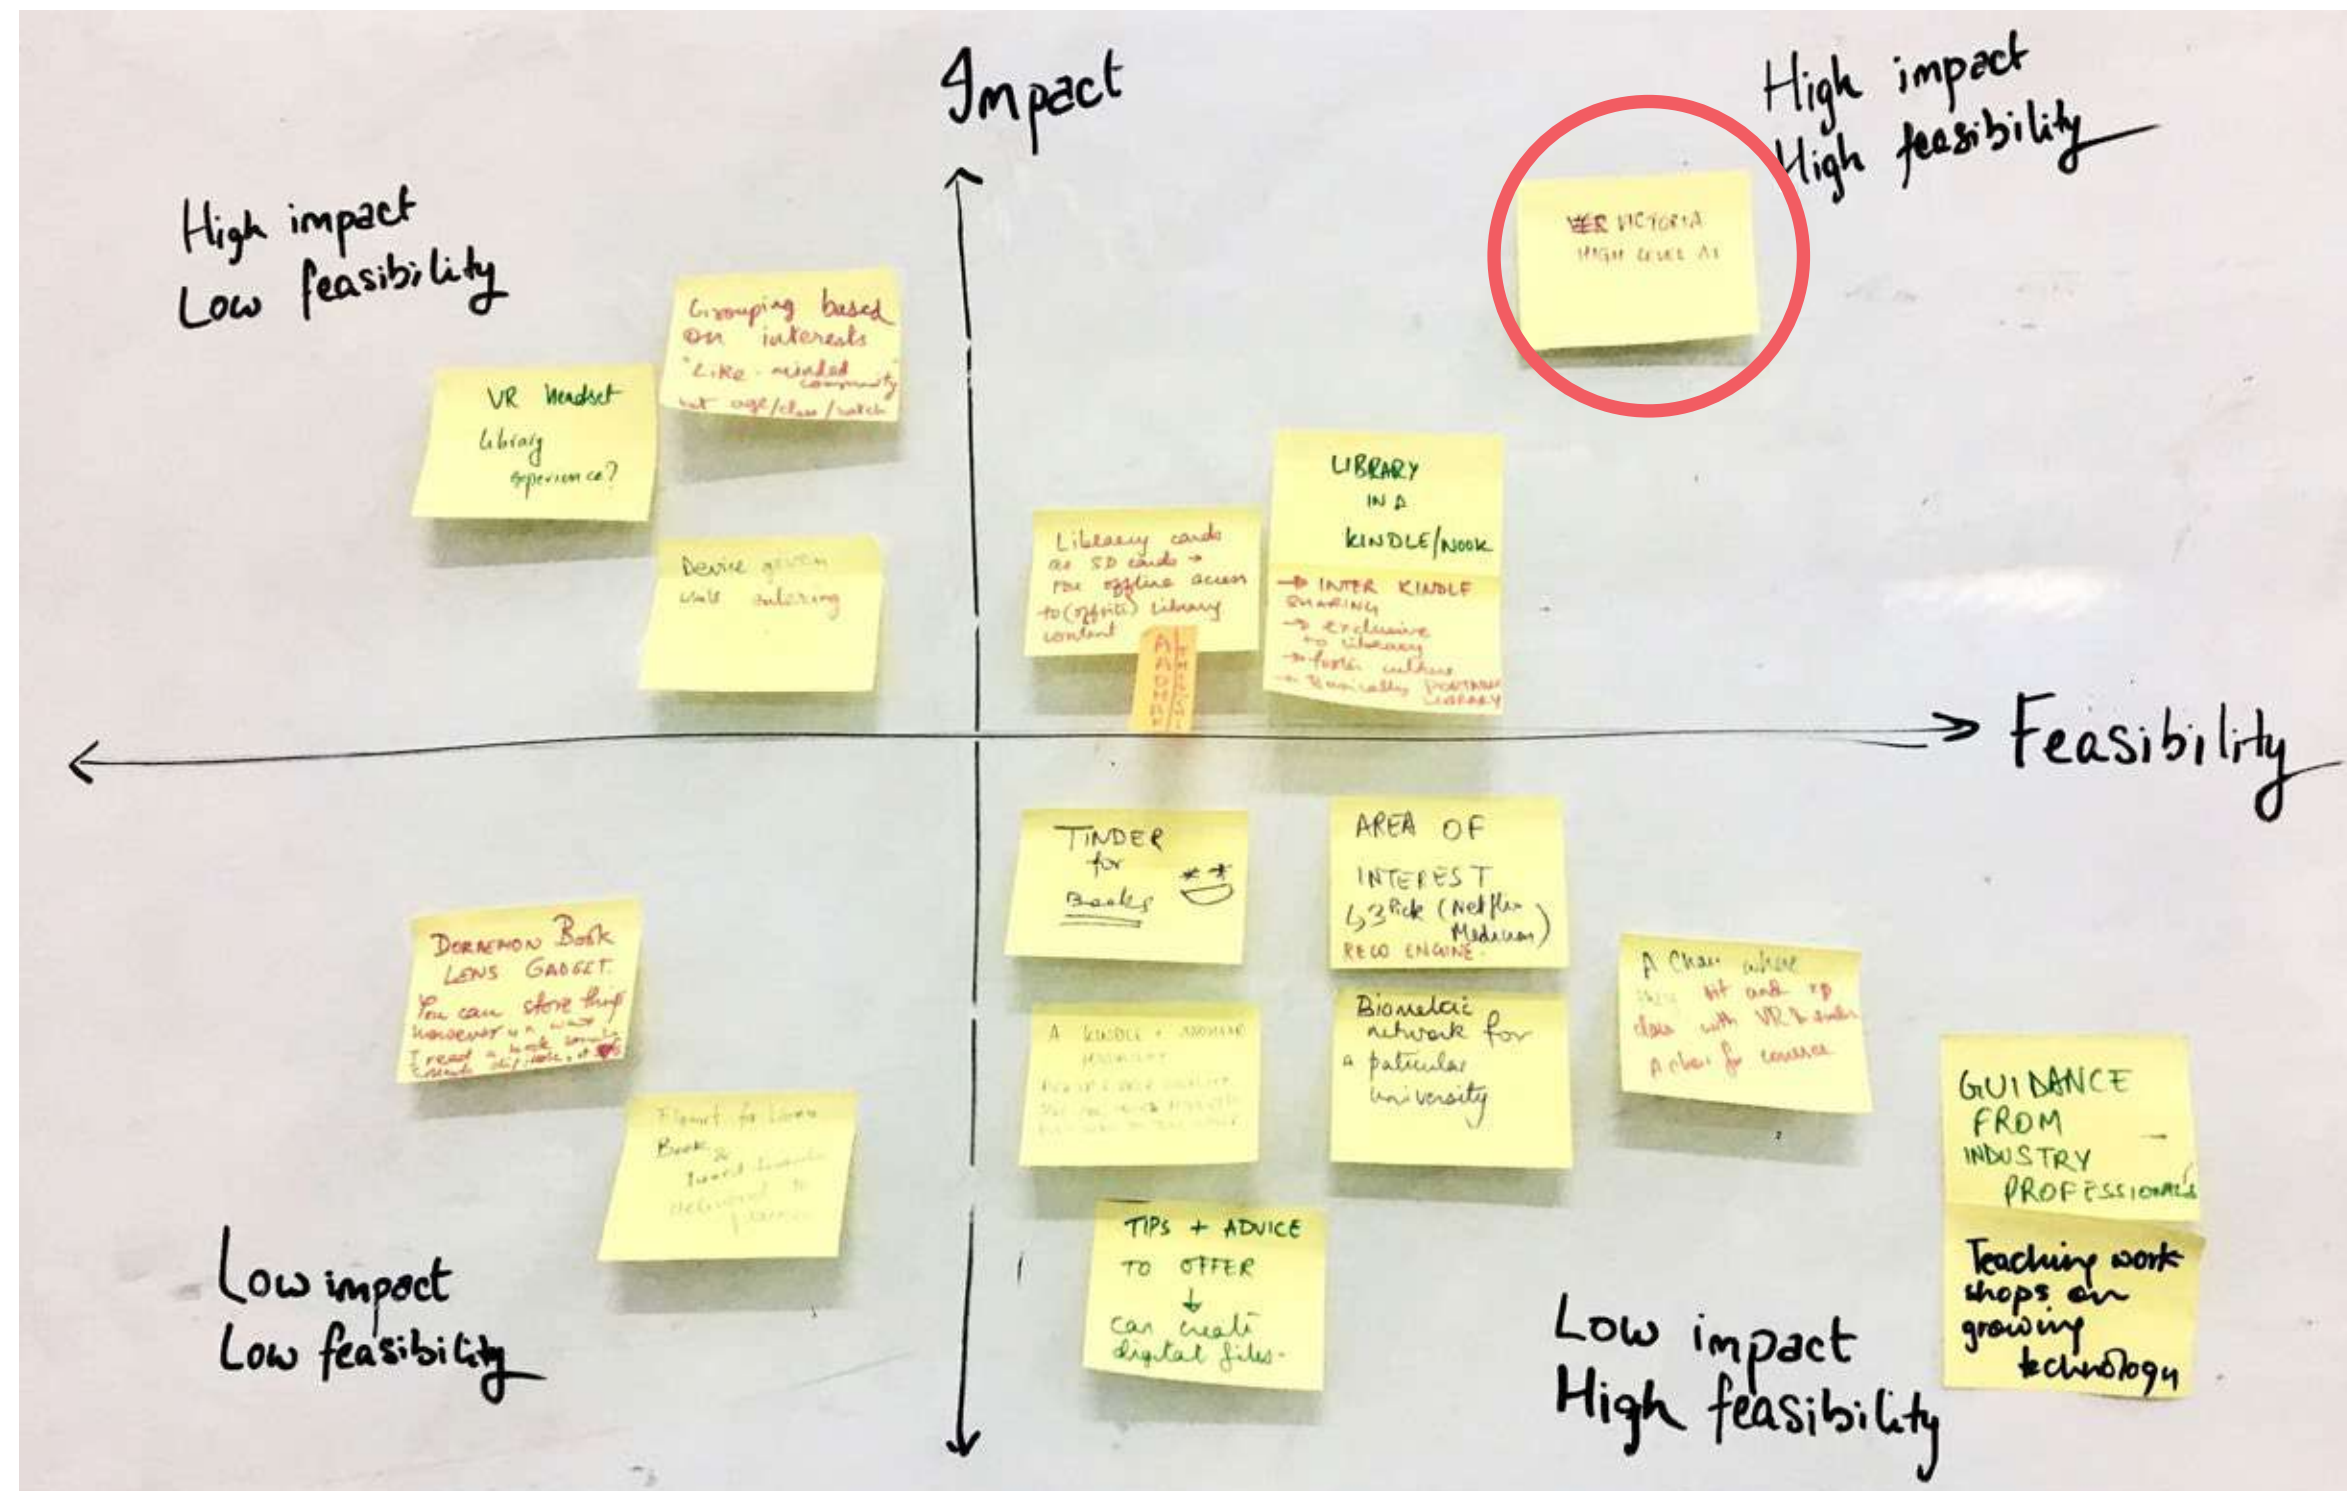 Impact
High impact
High feasibility
High impact
Low feasibility
VICTORIA
HIGH LEVEL AI
Grouping based
on interests
"Like-minded
community"
not age/class/batch
VR headset
library
experience?
Device given
while entering
Library cards
as SD cards →
for offline access
to (offsite) library
content
AADHAR
LIBRARY
IN A
KINDLE/NOOK
→ INTER KINDLE
SHARING
→ exclusive
to library
→ foster culture
→ Basically PORTABLE
LIBRARY
Feasibility
TINDER
for
Books
AREA OF
INTEREST
↳ 3 Pick (Netflix
Medium)
RECO ENGINE.
DORAEMON BOOK
LENS GADGET.
You can store things
however u want
I read a book
A KINDLE +
Biometric
network for
a paticular
university
A Chair where
they sit and
class with VR
A chair for course
GUIDANCE
FROM
INDUSTRY
PROFESSIONALS
Teaching work
shops on
growing
technology
Book &
delivered to
TIPS + ADVICE
TO OFFER
↓
can create
digital files.
Low impact
Low feasibility
Low impact
High feasibility